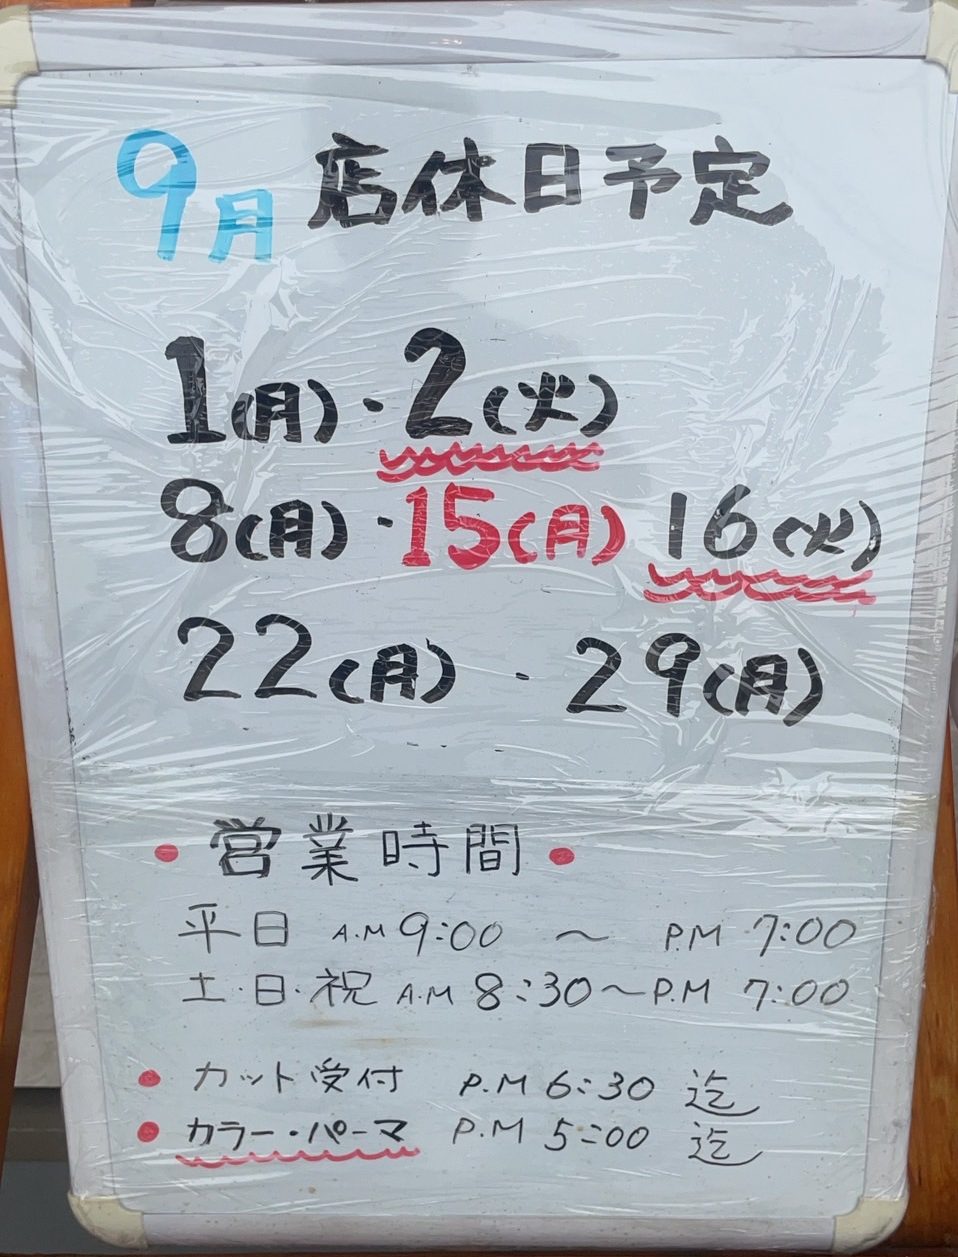 9月 店休日予定
1(月)・2(火)
8(月)・15(月) 16(火)
22(月)・29(月)
• 営業時間 •
平日 A.M 9:00 〜 P.M 7:00
土・日・祝 A.M 8:30〜P.M 7:00
• カット受付 P.M 6:30 迄
• カラー・パーマ P.M 5:00 迄